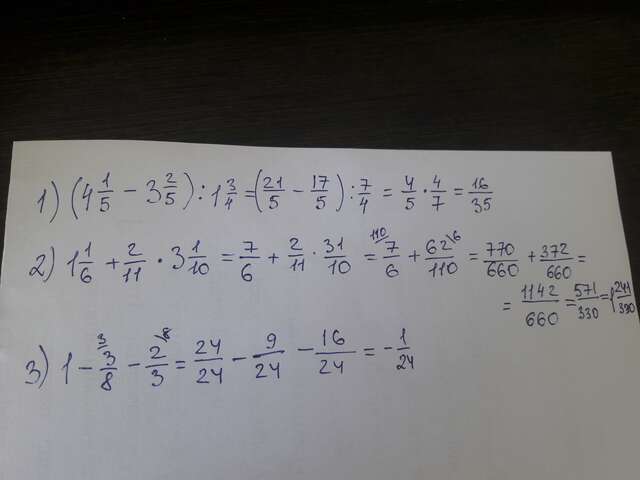 1) (4 1/5 - 3 2/5) : 1 3/4 = (21/5 - 17/5) : 7/4 = 4/5 · 4/7 = 16/35
2) 1 1/6 + 2/11 · 3 1/10 = 7/6 + 2/11 · 31/10 = 110/ 7/6 + 62\6/110 = 770/660 + 372/660 =
= 1142/660 = 571/330 = 1 241/330
3) 1 - 3/ 3/8 - 2\8/3 = 24/24 - 9/24 - 16/24 = - 1/24